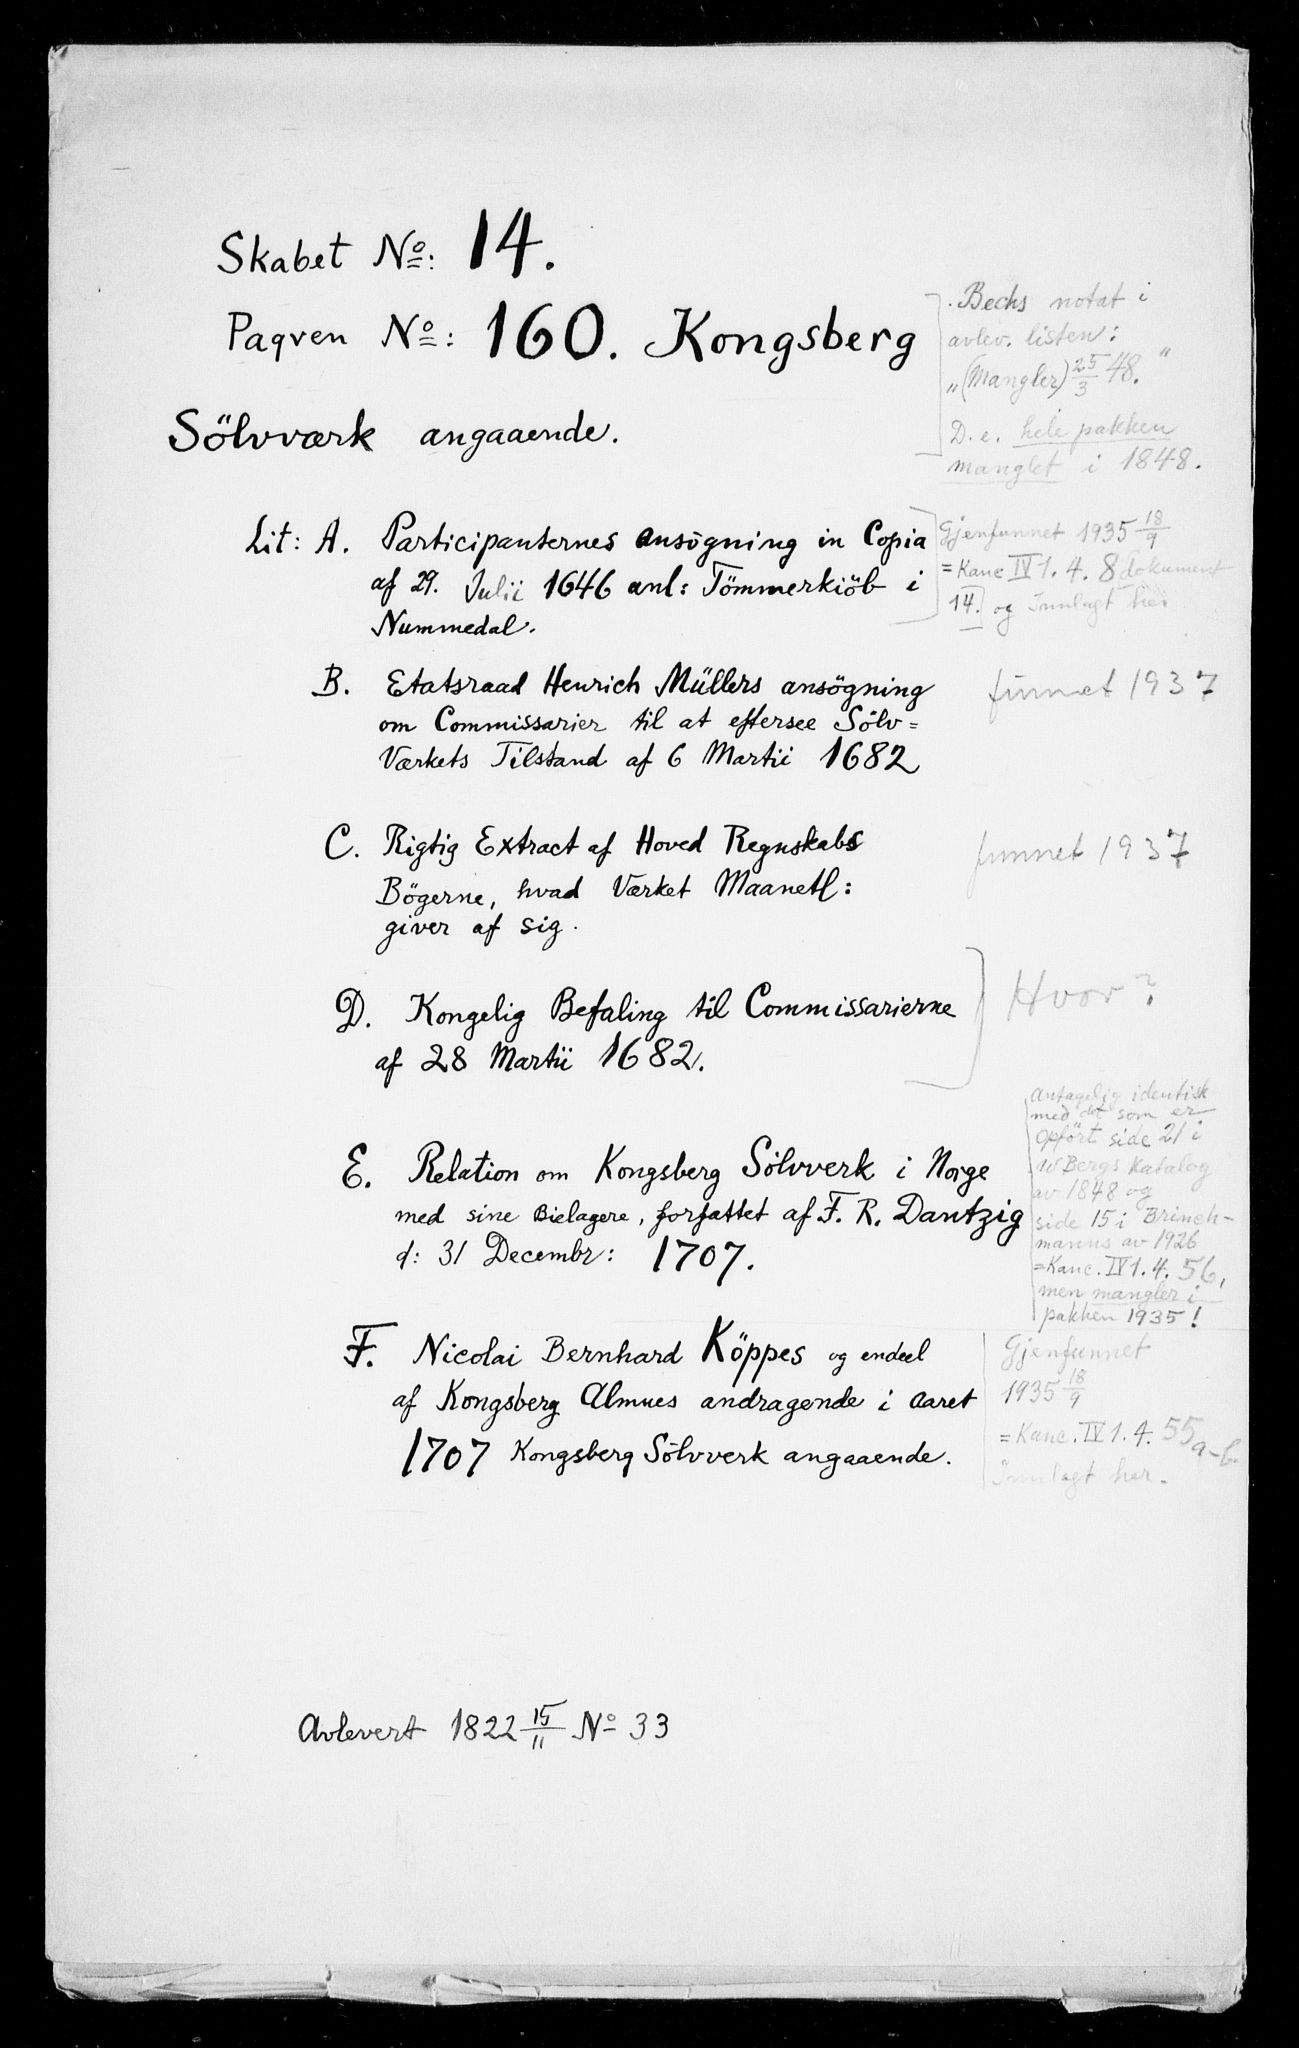 Skabet No: 14.
Paqven No: 160. Kongsberg
Sölvværk angaaende.
. Bechs notat i
avlev. listen:
„(Mangler) 25/3 48."
D. e. hele pakken
manglet i 1848.
Lit: A. Participanternes ansögning in Copia
af 29. Julii 1646 anl: Tömmerkiöb i
Nummedal.
Gjenfunnet 1935 18/9
= Kanc IV 1. 4. 8 dokument
14. og Innlagt her
B. Etatsraad Henrich Müllers ansögning
om Commissarier til at eftersee Sölv=
Værkets Tilstand af 6 Martii 1682
funnet 1937
C. Rigtig Extract af Hoved Regnskabs
Bögerne, hvad Værket Maanetl:
giver af sig.
funnet 1937
D. Kongelig Befaling til Commissarierne
af 28 Martii 1682.
Hvor?
E. Relation om Kongsberg Sölvverk i Norge
med sine Bielagere, forfattet af F. R. Dantzig
d: 31 Decembr: 1707.
antagelig identisk
med det som er
opført side 21 i
Bergs Katalog
av 1848 og
side 15 i Brinch-
manns av 1926
=Kanc. IV 1. 4. 56,
men mangler i
pakken 1935!
F. Nicolai Bernhard Köppes og endeel
af Kongsberg Almues andragende i Aaret
1707 Kongsberg Sölvverk angaaende.
Gjenfunnet
1935 18/9
= Kanc. IV 1. 4. 55 a-b.
Innlagt her.
Avlevert 1822 15/11 No 33